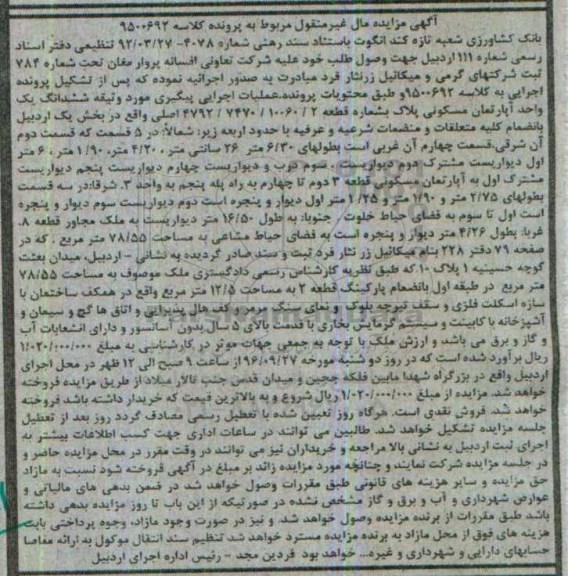 آگهی مزایده مال غیرمنقول مربوط به پرونده کلاسه ۹۵۰۰۶۹۲
بانک کشاورزی شعبه تازه کند انگوت باستناد سند رهنی شماره ۴۰۷۸- ۹۲/۰۳/۲۷ تنظیمی دفتر اسناد
رسمی شماره ۱۱۱ اردبیل جهت وصول طلب خود علیه شرکت تعاونی افسانه پروار مغان تحت شماره ۷۸۴
ثبت شرکتهای گرمی و میکائیل زرنثار فرد مبادرت به صدور اجرائیه نموده که پس از تشکیل پرونده
اجرایی به کلاسه ۹۵۰۰۶۹۲و طبق محتویات پرونده.عملیات اجرایی پیگیری مورد وثیقه ششدانگ یک
واحد آپارتمان مسکونی پلاک بشماره قطعه ۲ / ۱۰۰۶۰ / ۷۴۷۰ / ۴۷۹۲ اصلی واقع در بخش یک اردبیل
بانضمام کلیه متعلقات و منضمات شرعیه و عرفیه با حدود اربعه زیر: شمالاً: در ۵ قسمت که قسمت دوم
آن شرقی،قسمت چهارم آن غربی است بطولهای ۶/۳۰ متر ۲۶ سانتی متر ، ۴/۲۰ متر، ۱/۹۰ متر ، ۶ متر
اول دیواریست مشترک دوم دیواریست ، سوم درب و دیواریست چهارم دیواریست پنجم دیواریست
مشترک اول به آپارتمان مسکونی قطعه ۳ دوم تا چهارم به راه پله پنجم به واحد ۳. شرقا:در سه قسمت
بطولهای ۲/۷۵ متر و ۱/۹۰ متر و ۱/۲۵ متر اول دیوار و پنجره است دوم دیواریست سوم دیوار و پنجره
است اول تا سوم به فضای حیاط خلوت . جنوبا: به طول ۱۶/۵۰ متر دیواریست به ملک مجاور قطعه ۸.
غربا: بطول ۴/۲۶ متر دیوار و پنجره است به فضای حیاط مشاعی به مساحت ۷۸/۵۵ متر مربع . که در
صفحه ۷۹ دفتر ۲۲۸ بنام میکائیل زر نثار فرد ثبت و سند صادر گردیده به نشانی - اردبیل، میدان بعثت
کوچه حسینیه ۱ پلاک ۱۰.که طبق نظریه کارشناس رسمی دادگستری ملک موصوف به مساحت ۷۸/۵۵
متر مربع در طبقه اول بانضمام پارکینگ قطعه ۲ به مساحت ۱۲/۵ متر مربع واقع در همکف ساختمان با
سازه اسکلت فلزی و سقف تیرچه بلوک و نمای سنگ مرمر و کف هال پذیرائی و اتاق ها گچ و سیمان و
آشپزخانه با کابینت و سیستم گرمایش بخاری با قدمت بالای ۵ سال بدون آسانسور و دارای انشعابات آب
و گاز و برق می باشد و ارزش ملک با توجه به جمعی جهات موثر در کارشناسی به مبلغ ۱/۰۲۰/۰۰۰/۰۰۰
ریال برآورد شده است که در روز دو شنبه مورخه ۹۶/۰۹/۲۷ از ساعت ۹ صبح الی ۱۲ ظهر در محل اجرای
اردبیل واقع در بزرگراه شهدا مابین فلکه ججین و میدان قدس جنب تالار میلاد از طریق مزایده فروخته
خواهد شد. مزایده از مبلغ ۱/۰۲۰/۰۰۰/۰۰۰ ریال شروع و به بالاترین قیمت که خریدار داشته باشد فروخته
خواهد شد. فروش نقدی است. هرگاه روز تعیین شده با تعطیل رسمی مصادف گردد روز بعد از تعطیل
جلسه مزایده تشکیل خواهد شد. طالبین می توانند در ساعات اداری جهت کسب اطلاعات بیشتر به
اجرای ثبت اردبیل به نشانی بالا مراجعه و خریداران نیز می توانند در وقت مقرر در محل مزایده حاضر و
در جلسه مزایده شرکت نمایند و چنانچه مورد مزایده زائد بر مبلغ در آگهی فروخته شود نسبت به مازاد
حق مزایده و سایر هزینه های قانونی طبق مقررات وصول خواهد شد در ضمن بدهی های مالیاتی و
عوارض شهرداری و آب و برق و گاز مشخص نشده در صورتیکه از این باب تا روز مزایده بدهی داشته
باشد طبق مقررات از برنده مزایده وصول خواهد شد. و نیز در صورت وجود مازاد، وجوه پرداختی بابت
هزینه های فوق از محل مازاد به برنده مزایده مسترد خواهد شد تنظیم سند انتقال موکول به ارائه مفاصا
حسابهای دارایی و شهرداری و غیره... خواهد بود فردین مجد - رئیس اداره اجرای اردبیل